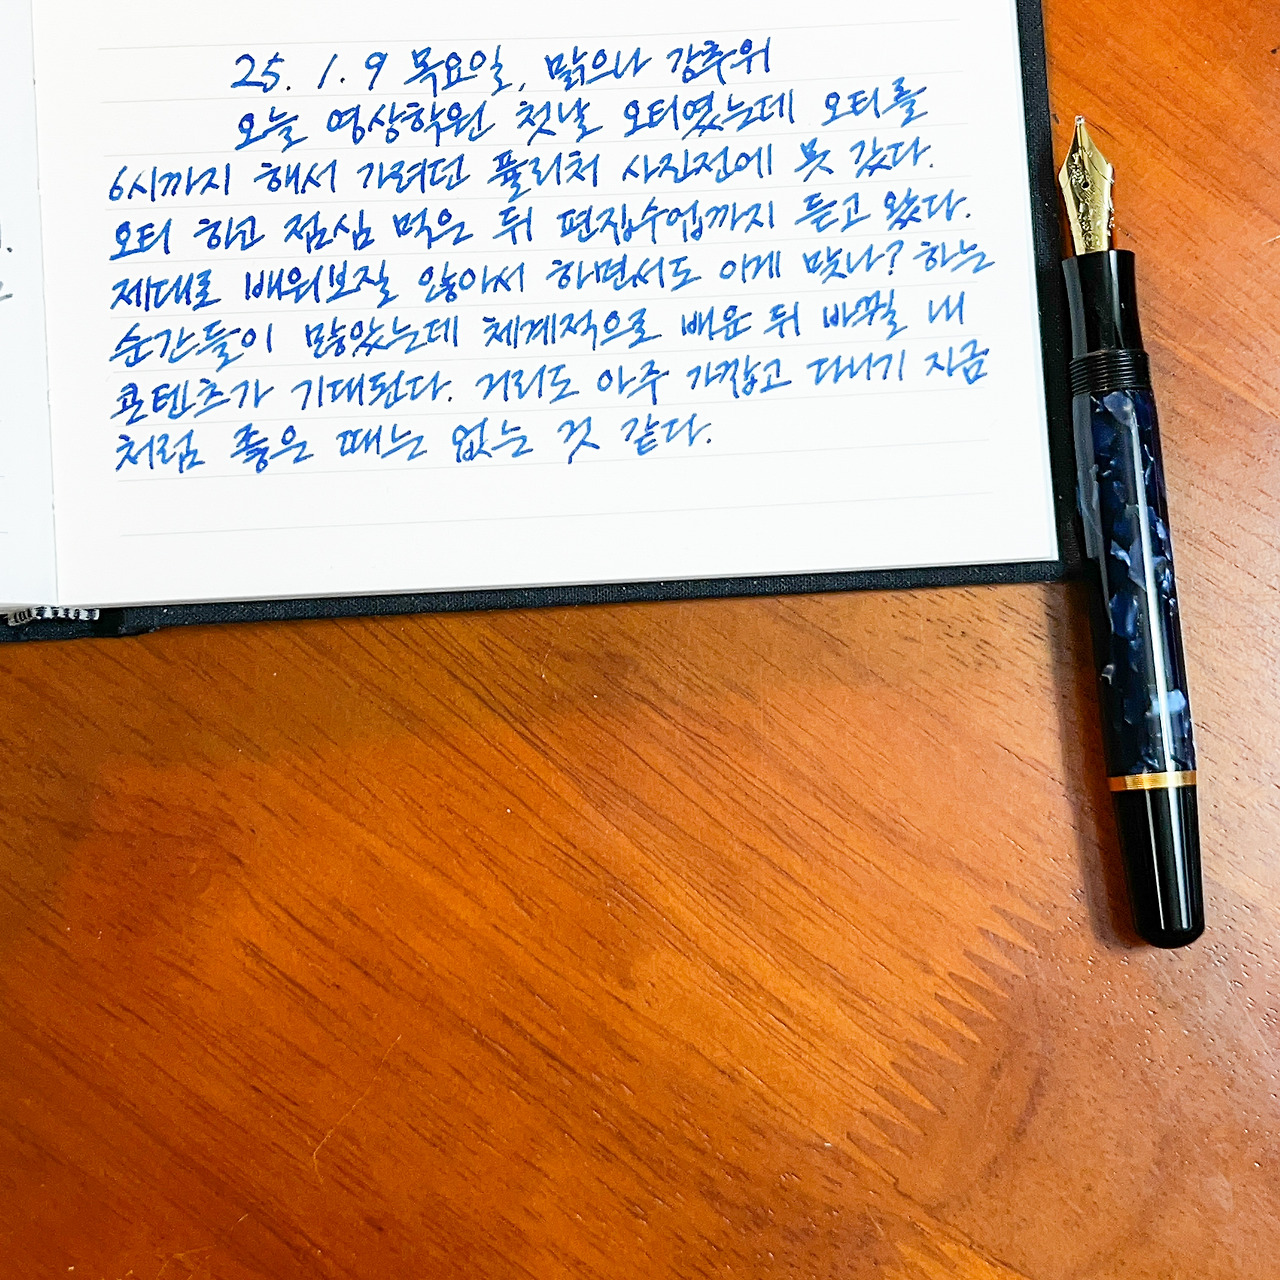 25. 1. 9 목요일, 맑으나 강추위
오늘 영상학원 첫날 오티였는데 오티를
6시까지 해서 가려던 퓰리처 사진전에 못 갔다.
오티 하고 점심 먹은 뒤 편집수업까지 듣고 왔다.
제대로 배워보질 않아서 하면서도 이게 맞나? 하는
순간들이 많았는데 체계적으로 배운 뒤 바뀔 내
콘텐츠가 기대된다. 거리도 아주 가깝고 다니기 지금
처럼 좋은 때는 없는 것 같다.